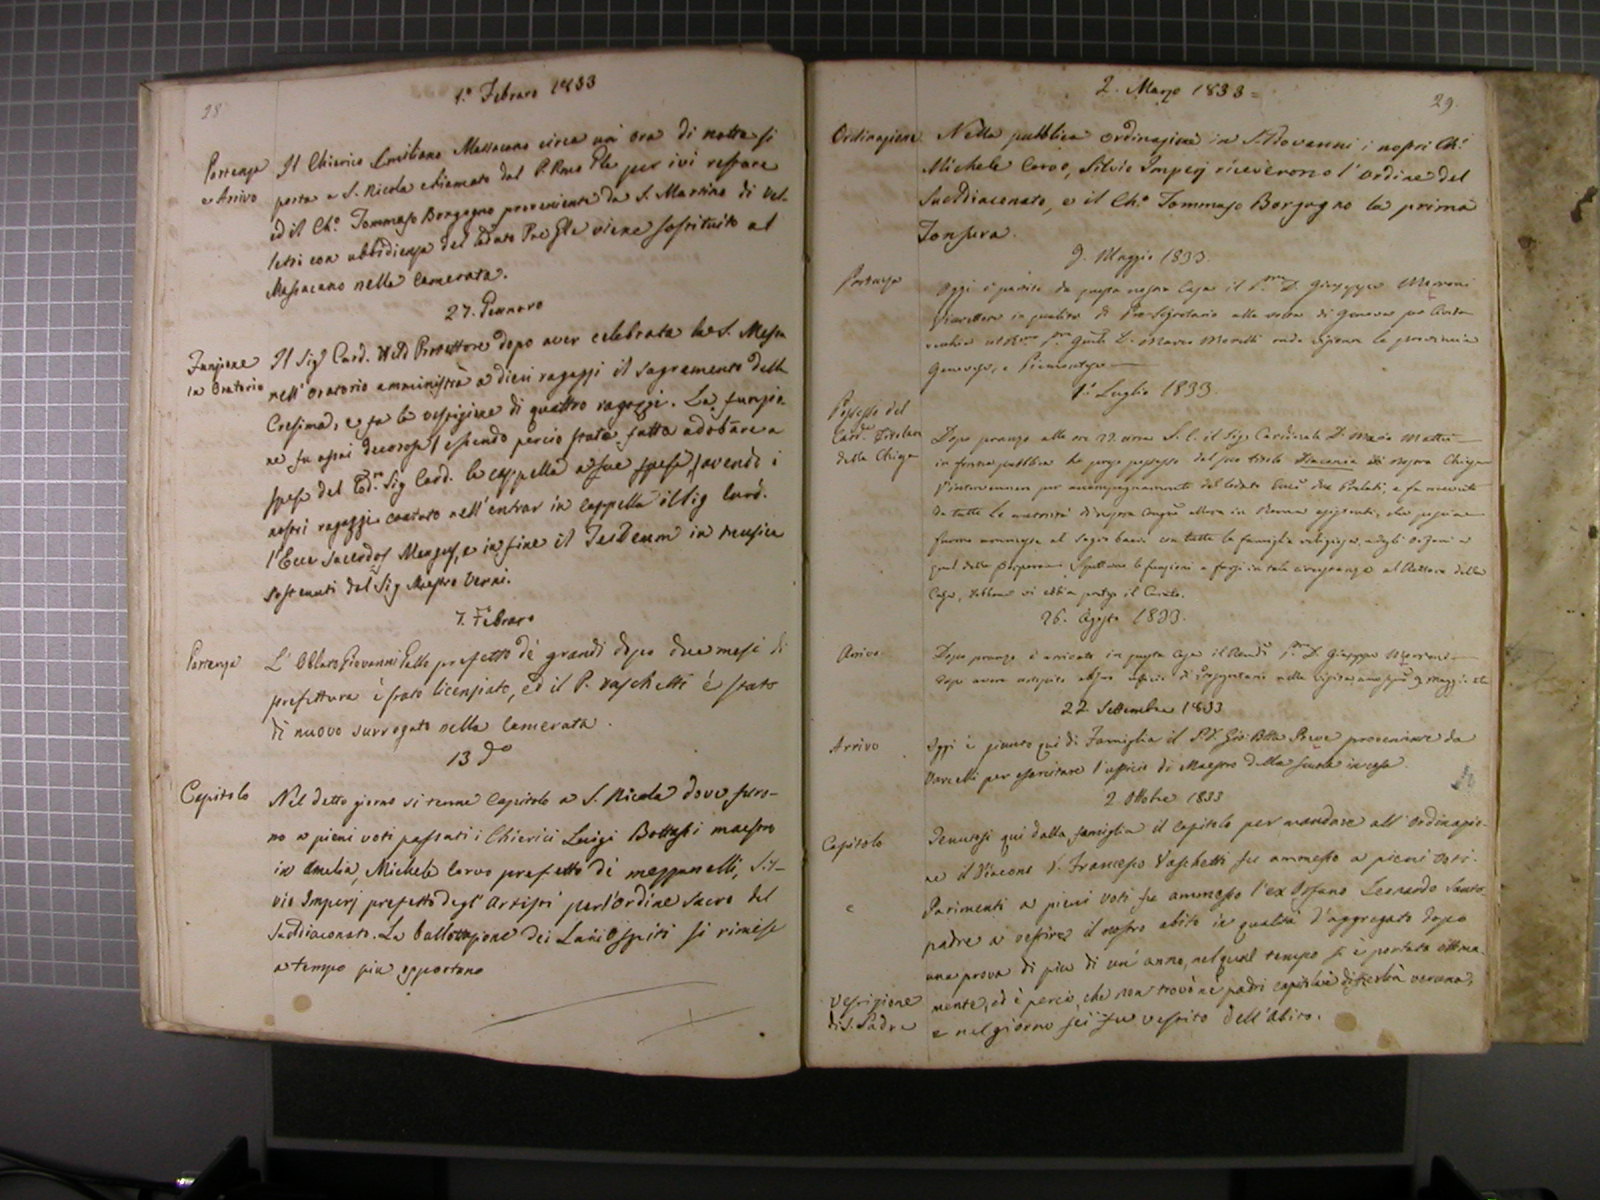 28
1.º Febraro 1833
Partenza
e Arrivo
Il Chierico Emiliano Massacano circa un'ora di notte si
porta a S. Nicola chiamato dal P. Rmo Gle per ivi restare
ed il Ch.º Tommaso Borgogno proveniente da S. Martino di Vel-
letri con ubbidienza del lodato Pre Gle viene sostituito al
Massacano nella Camerata.
27. Gennaro
Funzione
in Oratorio
Il Sig Card. Weld Protettore dopo aver celebrata la S. Messa
nell'Oratorio amministrò a dieci ragazzi il sagramento della
Cresima, e fa la vestizione di quattro ragazzi. La funzio
ne fu assai decorosa essendo perciò stata fatta adobare a
spese del Sig Card. la cappella a sue spese, avendo i
nostri ragazzi cantato nell'entrar in cappella il Sig Card.
l'Ecce Sacerdos Magnus, e in fine il Te Deum in musica
sostenuti dal Sig Maestro Verni.
7. Febraro
Partenza
L'Oblato Giovanni Gallo prefetto dè grandi dopo due mesi di
prefettura è stato licenziato, ed il P. Vaschetti è stato
di nuovo surrogato nella Camerata.
13 do
Capitolo
Nel detto giorno si tenne Capitolo a S. Nicola dove furo-
no a pieni voti passati i Chierici Luigi Bottassi maestro
in Amelia, Michele Corvo prefetto dè mezzanelli, Sil-
vio Imperj prefetto degl'Artisti per l'Ordine Sacro del
Suddiaconato. La ballottazione dei Laici Ospiti si rimise
a tempo piu opportuno
2. Marzo 1833
29.
Ordinazione
Nella pubblica Ordinazione in S. Giovanni i nostri Ch.i
Michele Corvo, Silvio Imperj riceverono l'ordine del
Suddiaconato, e il Ch.º Tommaso Borgogno la prima
Tonsura.
9. Maggio 1833
Partenza
Oggi è partito da questa nostra Casa il P. D. Giuseppe Marconi
in qualità di Pro-Segretario alla volta di Genova per
D. Marco Morelli onde la provincia
Genovese, e Piemontese
1.º Luglio 1833
Possesso del
Card.e Titolare
della Chiesa
Dopo pranzo alle ore 22. circa S. E. il Sig. Cardinale D. Mario Mattei
in forma pubblica ha preso possesso del suo titolo Diaconia di nostra Chiesa
v'intervennero per accompagnamento del lodato due Prelati, e fu ricevuto
da tutte le autorità di nostra allora in Roma esistenti, che
furono ammesse al bacio con tutta la famiglia religiosa, cogli Orfani e
Spettano le funzioni a farsi in tale circostanza al Rettore della
Casa, sebbene vi abbia il Curato.
26. Agosto 1833.
Arrivo
Dopo pranzo è arrivato in questa Casa il P. D. Giuseppe Marconi
dopo avere adempito all'ufficio di Segretario nella 9 Maggio
22 Settembre 1833
Arrivo
Oggi è giunto quì di Famiglia il P. D. Gio: Btta Pieve proveniente da
Vercelli per esercitare l'ufficio di Maestro della scuola in casa.
2 Ottobre 1833
Capitolo
Tenutosi quì dalla famiglia il Capitolo per mandare all'ordinazio-
ne il Diacono D. Francesco Vaschetti fu ammesso a pieni voti.
e
Parimenti a pieni voti fu ammesso l'ex Orfano Leonardo Santo
padre a vestire il nostro abito in qualità d'aggregato dopo
una prova di piu di un'anno, nel qual tempo si è portato ottima-
mente, ed è perciò che non trovò ne' padri capitolari difficoltà veruna,
Vestizione
di S. Padre
e nel giorno sei fu vestito dell'abito.